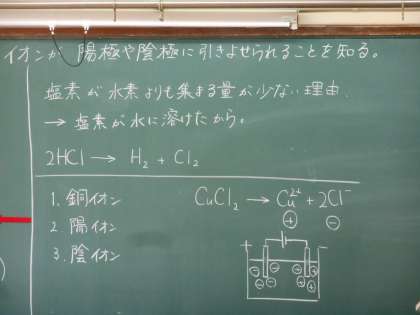 イオンが 陽極や陰極に引きよせられることを知る。
塩素が水素よりも集まる量が少ない理由、
→ 塩素が水に溶けたから。
2HCl → H₂ + Cl₂
1. 銅イオン
2 陽イオン
3. 陰イオン
CuCl₂ → Cu²⁺ + 2Cl⁻
⊕ ⊖
+ −
⊖ ⊖ ⊖ ⊕ ⊕ ⊕